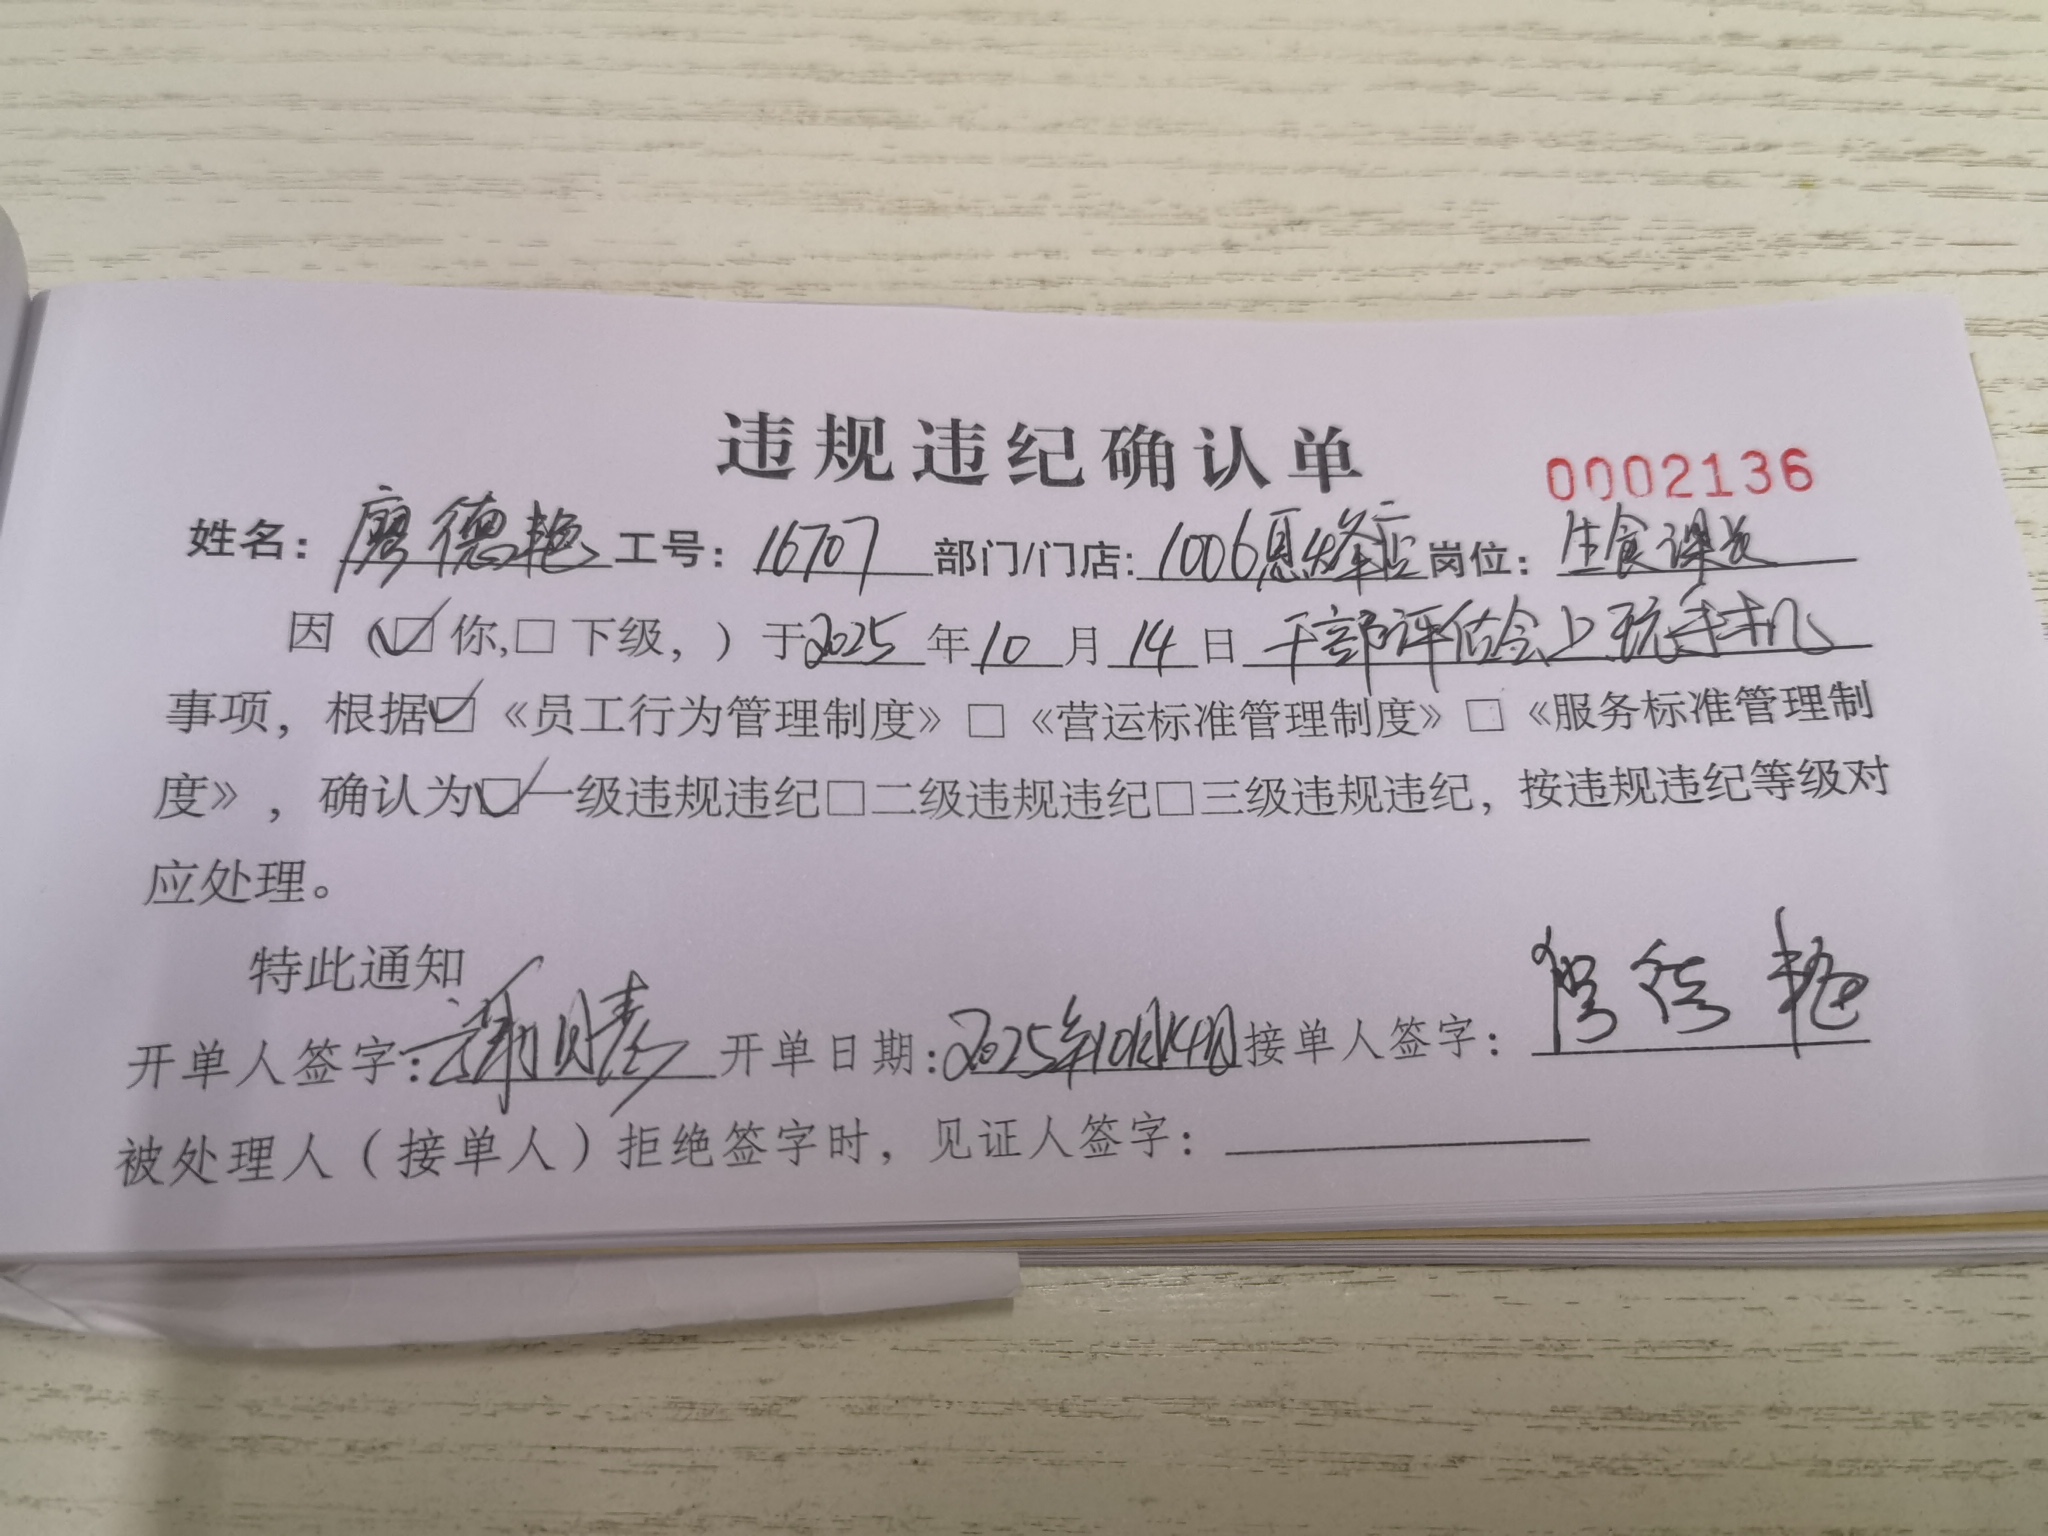 违规违纪确认单
0002136
姓名：廖德艳 工号：16707 部门/门店: 1006恩施二店 岗位：生食课长
因（☑你,□下级，）于2025年10月14日干部评估会上玩手机
事项，根据☑《员工行为管理制度》□《营运标准管理制度》□《服务标准管理制
度》，确认为☑一级违规违纪□二级违规违纪□三级违规违纪，按违规违纪等级对
应处理。
特此通知
开单人签字： 开单日期:2025年10月14日 接单人签字：廖德艳
被处理人（接单人）拒绝签字时，见证人签字：